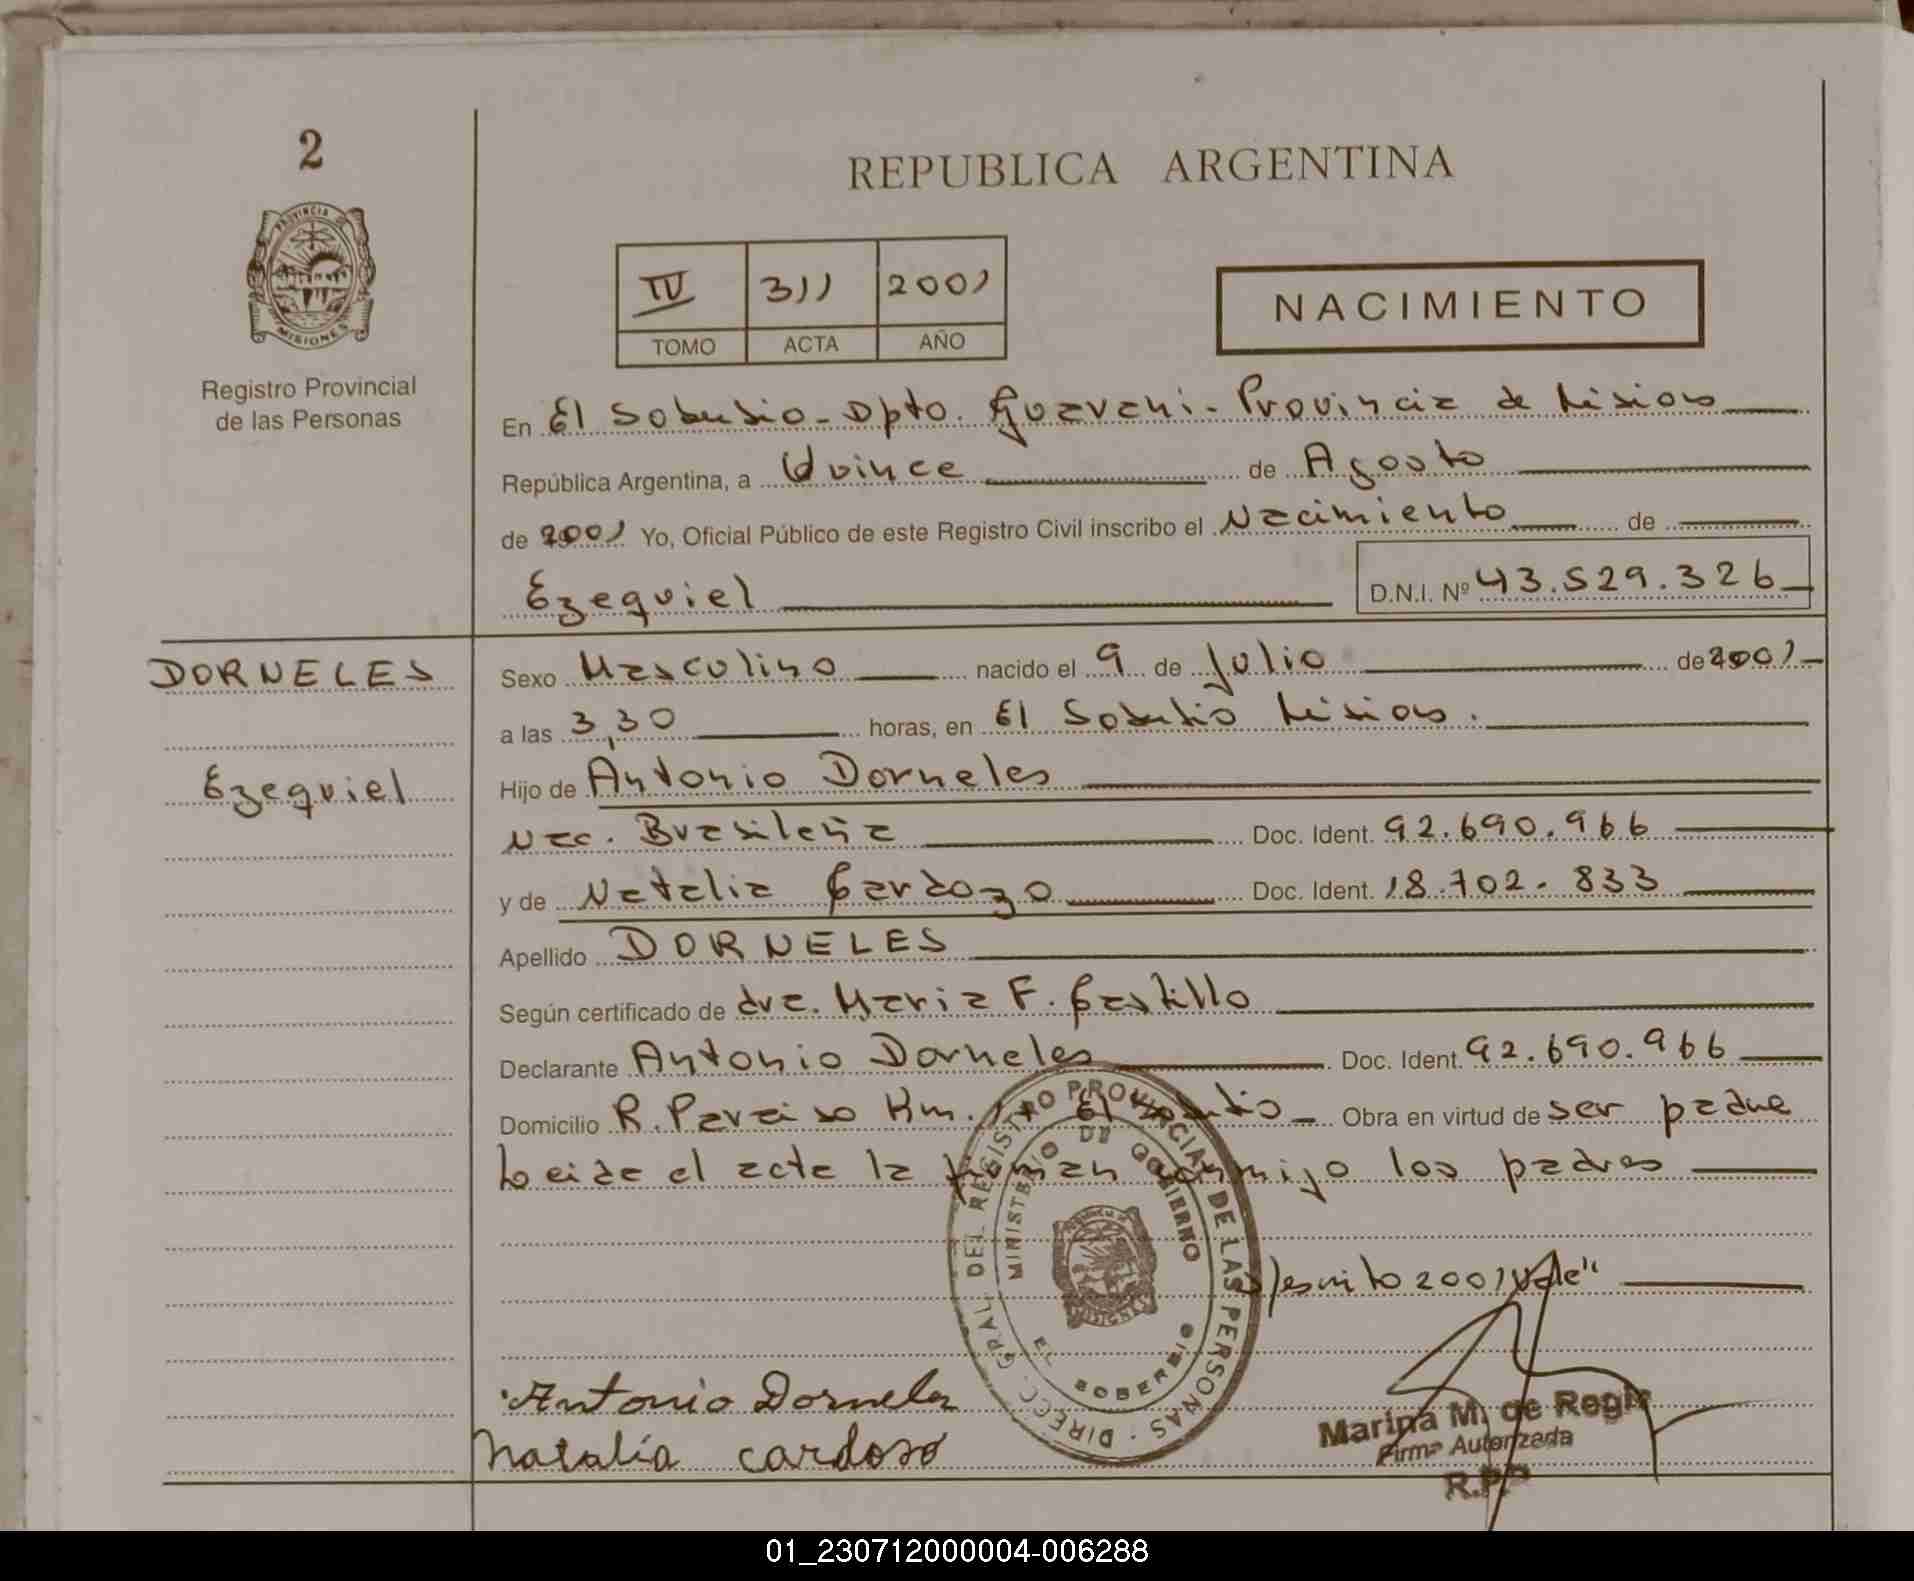 2
REPUBLICA ARGENTINA
PROVINCIA DE
MISIONES
Registro Provincial
de las Personas
IV 311 2001
TOMO ACTA AÑO
NACIMIENTO
En El Soberbio - Dpto. Guarani - Provincia de Misiones
República Argentina, a Quince de Agosto
de 2001 Yo, Oficial Público de este Registro Civil inscribo el Nacimiento de
Ezequiel D.N.I. Nº 43.529.326
DORNELES Sexo Masculino nacido el 9 de Julio de 2001
a las 3,30 horas, en El Soberbio Misiones.
Ezequiel Hijo de Antonio Dorneles
Nac. Brasileña Doc. Ident. 92.690.966
y de Natalia Cardozo Doc. Ident. 18.702.833
Apellido DORNELES
Según certificado de dra. Maria F. Castillo
Declarante Antonio Dorneles Doc. Ident. 92.690.966
Domicilio R. Paraiso Km. El Soberbio Obra en virtud de ser padre
Leida el acta la firman conmigo los padres
S/escrito 2001 vale"
DIRECC. GRAL. DEL REGISTRO PROVINCIAL DE LAS PERSONAS
MINISTERIO DE GOBIERNO
EL SOBERBIO
Antonio Dorneles
Natalia cardoso
Marina M. de Regis
Firma Autorizada
R.P.P
01_230712000004-006288